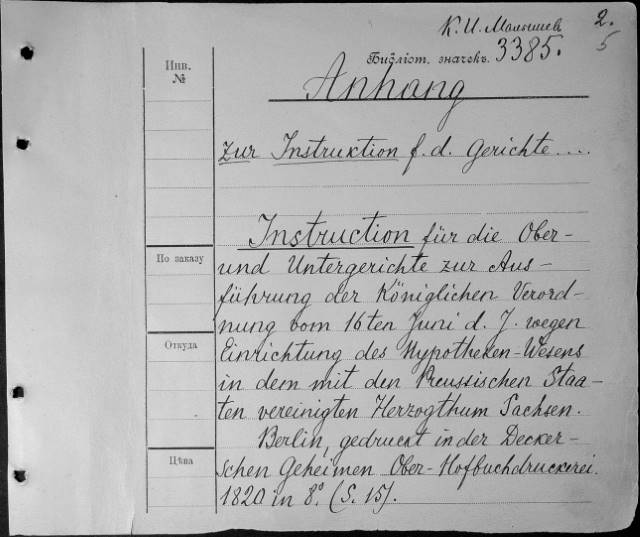 К. И. Малышев
2.
5
Библіот. значекъ. 3385.
Инв.
№
Anhang
zur Instruktion f. d. Gerichte....
Instruction für die Ober-
По заказу
und Untergerichte zur Aus-
führung der Königlichen Verord-
nung vom 16ten Juni d. J. wegen
Откуда
Einrichtung des Hypotheken-Wesens
in dem mit den Preussischen Staa-
ten vereinigten Herzogthum Sachsen.
Berlin, gedruckt in der Decker-
Цѣна
schen Geheimen Ober-Hofbuchdruckerei.
1820 in 8° (S. 15).